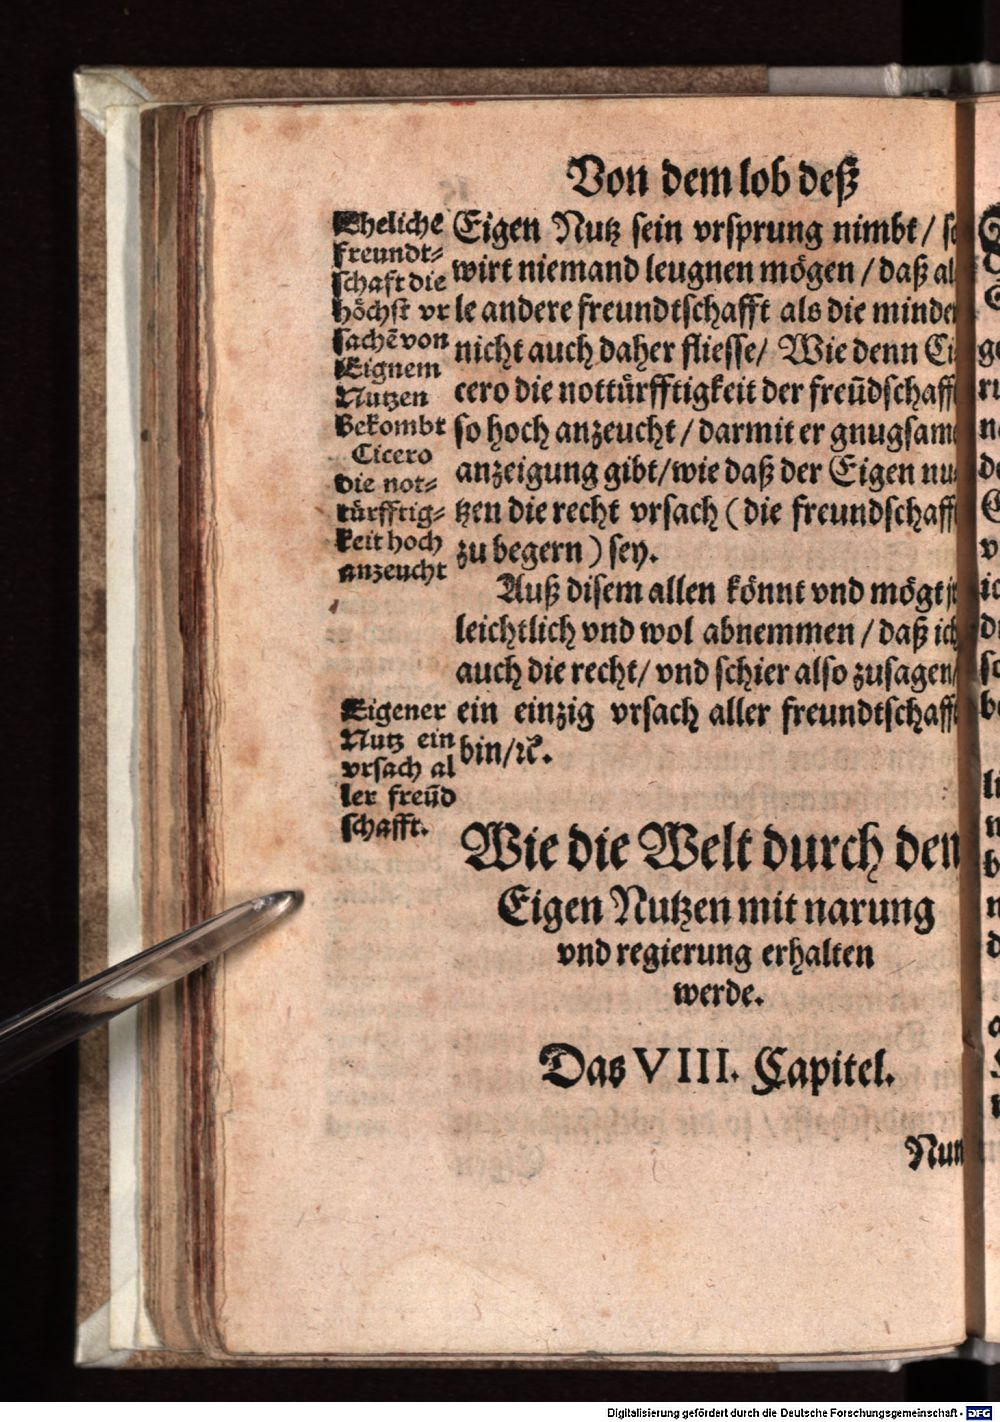 Von dem lob deß
Eheliche
freundt-
schaft die
höchst vr
sachē von
Eignem
Nutzen
bekombt
Cicero
die not-
türfftig-
keit hoch
anzeucht
Eigen Nutz sein vrsprung nimbt / so
wirt niemand leugnen mögen / daß al
le andere freundtschafft als die minder
nicht auch daher fliesse / Wie denn Ci
cero die nottürfftigkeit der freūdschafft
so hoch anzeucht / darmit er gnugsam
anzeigung gibt / wie daß der Eigen nu-
tzen die recht vrsach ( die freundschafft
zu begern ) sey.
Auß disem allen könnt vnd mögt jr
leichtlich vnd wol abnemmen / daß ich
auch die recht / vnd schier also zusagen /
ein einzig vrsach aller freundtschafft
bin / ꝛc.
Eigener
Nutz ein
vrsach al
ler freūd
schafft.
Wie die Welt durch den
Eigen Nutzen mit narung
vnd regierung erhalten
werde.
Das VIII. Capitel.
Nun
Digitalisierung gefördert durch die Deutsche Forschungsgemeinschaft - DFG